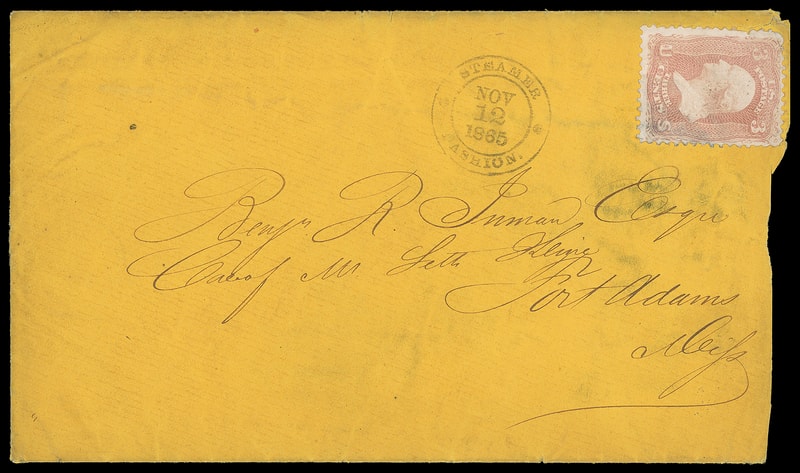 STEAMER
NOV
12
1865
FASHION.
U.S.
POSTAGE
THREE
CENTS
3
U
S
3
Benjn R. Inman Esqre
Care of Mr. Seth
Fort Adams
Miss